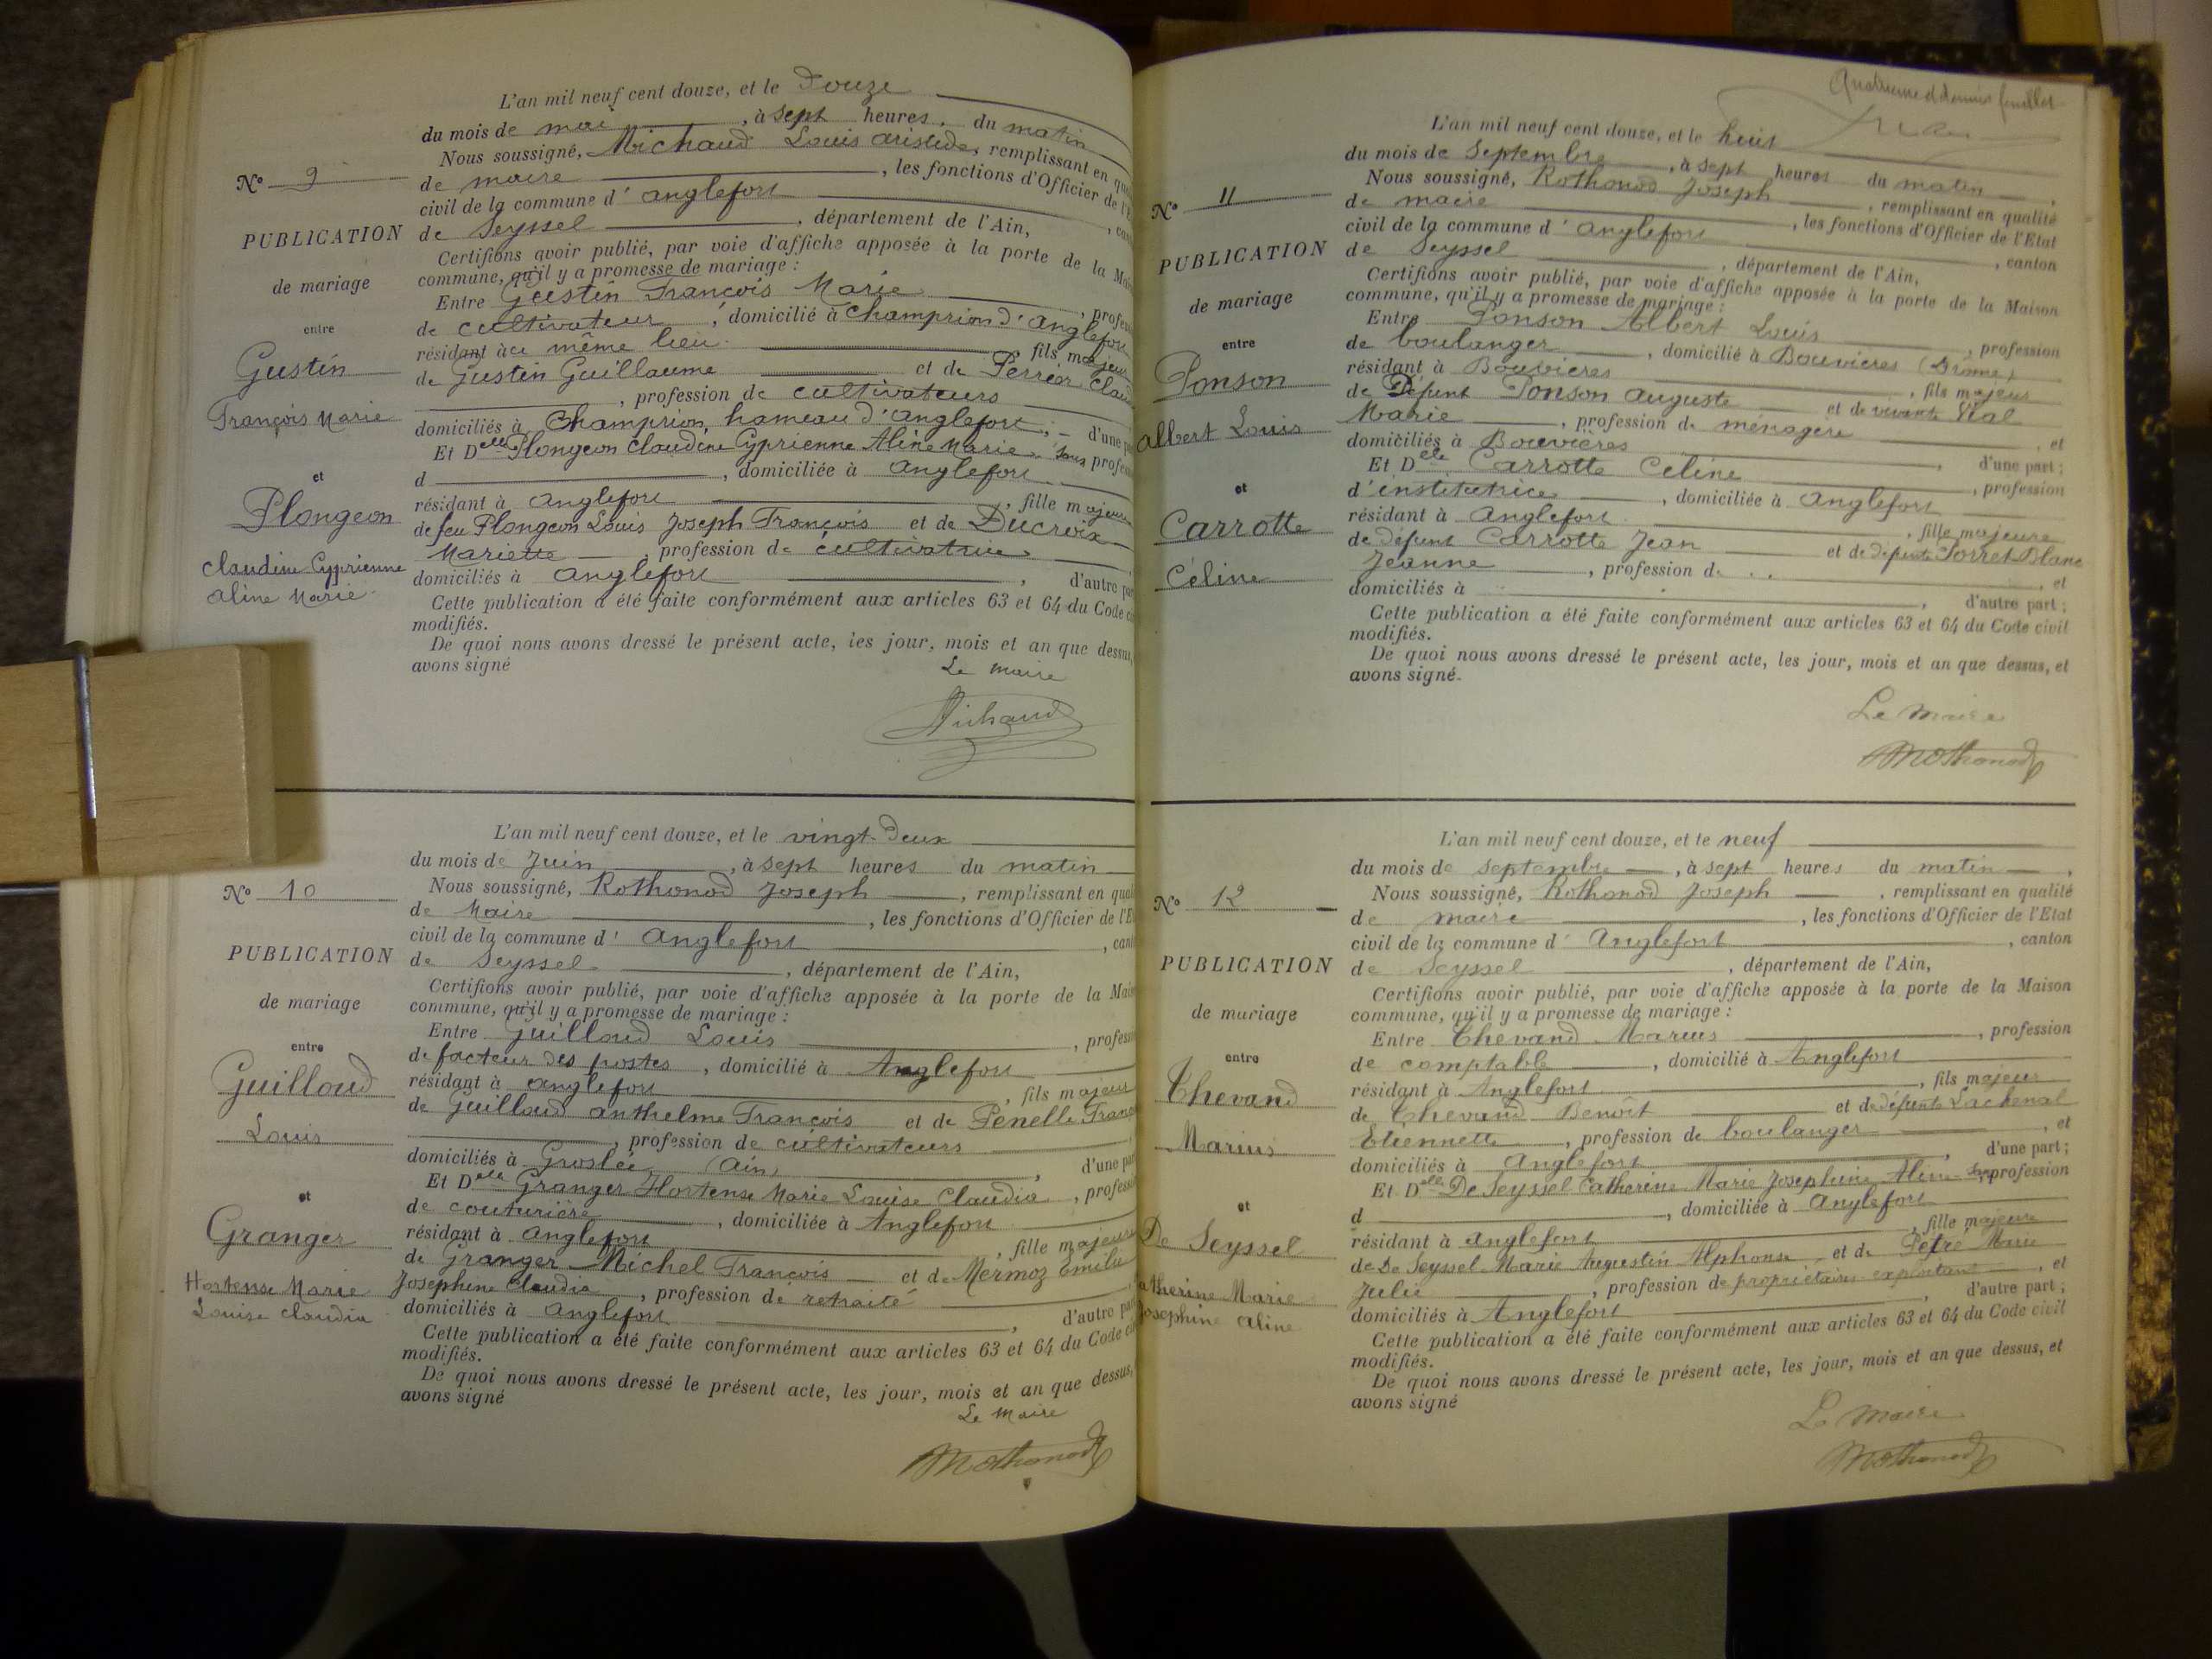 L'an mil neuf cent douze, et le Douze
du mois de mai, à sept heures, du matin
Nous soussigné, Michaud Louis aristide, remplissant en qua
de maire, les fonctions d'Officier de l'E
civil de la commune d' anglefort, can
de Seyssel, département de l'Ain,
Certifions avoir publié, par voie d'affiche apposée à la porte de la Mai
commune, qu'il y a promesse de mariage :
Entre Gustin François Marie, profess
de cultivateur, domicilié à Champrion d'anglefort
résidant à ce même lieu, fils majeur
de Gustin Guillaume et de Perrier Clau
, profession de cultivateurs
domiciliés à Champrion, hameau d'anglefort, d'une pa
Et Delle Plongeon Claudine Cyprienne Aline Marie sans profess
d, domiciliée à anglefort
résidant à anglefort, fille majeure
de feu Plongeon Louis Joseph François et de Ducroix
Mariette, profession de cultivatrice
domiciliés à anglefort, d'autre par
Cette publication a été faite conformément aux articles 63 et 64 du Code ci
modifiés.
De quoi nous avons dressé le présent acte, les jour, mois et an que dessus,
avons signé
Le maire
Michaud
N° 9
PUBLICATION
de mariage
entre
Gustin
François Marie
et
Plongeon
Claudine Cyprienne
Aline Marie
L'an mil neuf cent douze, et le vingt-Deux
du mois de Juin, à sept heures du matin
Nous soussigné, Rothonod Joseph, remplissant en quali
de Maire, les fonctions d'Officier de l'E
civil de la commune d' anglefort, cant
de Seyssel, département de l'Ain,
Certifions avoir publié, par voie d'affiche apposée à la porte de la Mais
commune, qu'il y a promesse de mariage :
Entre Guilloud Louis, profess
de facteur des postes, domicilié à Anglefort
résidant à anglefort, fils majeur
de Guilloud anthelme François et de Penelle Franç
, profession de cultivateurs
domiciliés à Groslée (Ain), d'une par
Et Delle Granger Hortense Marie Louise Claudia, profess
de couturière, domiciliée à Anglefort
résidant à anglefort, fille majeure
de Granger Michel François et de Mermoz Emilie
Josephine Claudia, profession de retraité
domiciliés à anglefort, d'autre par
Cette publication a été faite conformément aux articles 63 et 64 du Code ci
modifiés.
De quoi nous avons dressé le présent acte, les jour, mois et an que dessus,
avons signé
Le Maire
Rothonod
N° 10
PUBLICATION
de mariage
entre
Guilloud
Louis
et
Granger
Hortense Marie
Louise Claudia
Quatrième et dernier feuillet
L'an mil neuf cent douze, et le huit
du mois de Septembre, à sept heures du matin,
Nous soussigné, Rothonod Joseph, remplissant en qualité
de maire, les fonctions d'Officier de l'Etat
civil de la commune d' anglefort, canton
de Seyssel, département de l'Ain,
Certifions avoir publié, par voie d'affiche apposée à la porte de la Maison
commune, qu'il y a promesse de mariage :
Entre Ponson Albert Louis, profession
de boulanger, domicilié à Bouvières (Drôme)
résidant à Bouvières, fils majeur
de Défunt Ponson Auguste et de vivante Vial
Marie, profession de ménagère, et
domiciliés à Bouvières, d'une part ;
Et Delle Carrotte Celine, profession
d'institutrice, domiciliée à anglefort
résidant à anglefort, fille majeure
de défunt Carrotte Jean et de défunte Porret Blanc
Jeanne, profession de . ., et
domiciliés à, d'autre part ;
Cette publication a été faite conformément aux articles 63 et 64 du Code civil
modifiés.
De quoi nous avons dressé le présent acte, les jour, mois et an que dessus, et
avons signé.
Le Maire
Rothonod
N° 11
PUBLICATION
de mariage
entre
Ponson
Albert Louis
et
Carrotte
Céline
L'an mil neuf cent douze, et le neuf
du mois de septembre, à sept heures du matin,
Nous soussigné, Rothonod Joseph, remplissant en qualité
de maire, les fonctions d'Officier de l'Etat
civil de la commune d' Anglefort, canton
de Seyssel, département de l'Ain,
Certifions avoir publié, par voie d'affiche apposée à la porte de la Maison
commune, qu'il y a promesse de mariage :
Entre Chevand Marius, profession
de comptable, domicilié à Anglefort
résidant à Anglefort, fils majeur
de Chevand Benoît et de défunte Lachenal
Etiennette, profession de boulanger, et
domiciliés à Anglefort, d'une part ;
Et Delle De Seyssel Catherine Marie Josephine Aline sans profession
d, domiciliée à Anglefort
résidant à anglefort, fille majeure
de De Seyssel Marie Augustin Alphonse et de Petre Marie
Julie, profession de propriétaires exploitant, et
domiciliés à Anglefort, d'autre part ;
Cette publication a été faite conformément aux articles 63 et 64 du Code civil
modifiés.
De quoi nous avons dressé le présent acte, les jour, mois et an que dessus, et
avons signé
Le Maire
Rothonod
N° 12
PUBLICATION
de mariage
entre
Chevand
Marius
et
De Seyssel
atherine Marie
Josephine Aline